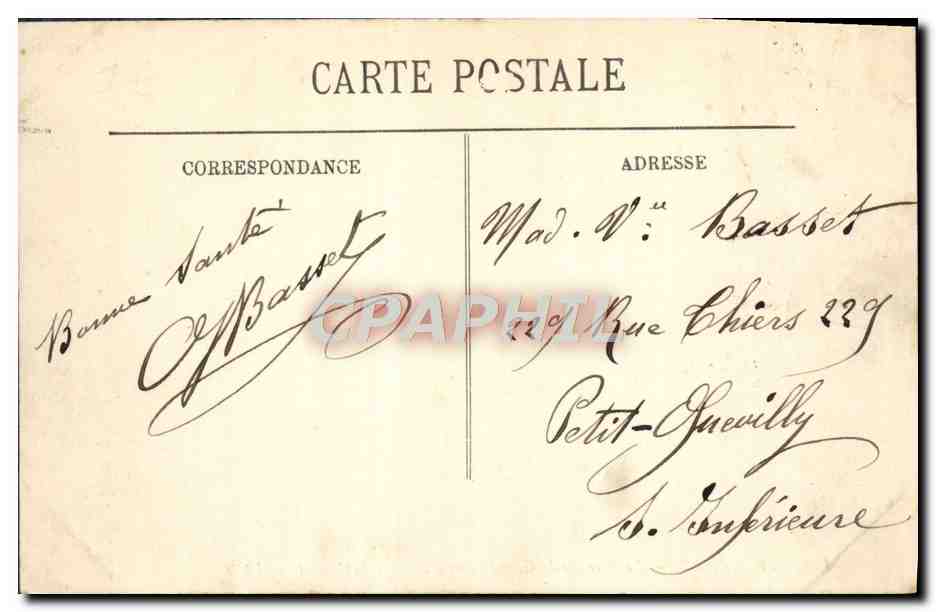 CARTE POSTALE
CORRESPONDANCE
Bonne Santé
Basset
ADRESSE
Mad. Vᵛᵉ: Basset
229 Rue Thiers 229
Petit-Quevilly
S. Inférieure
CPAPHIL